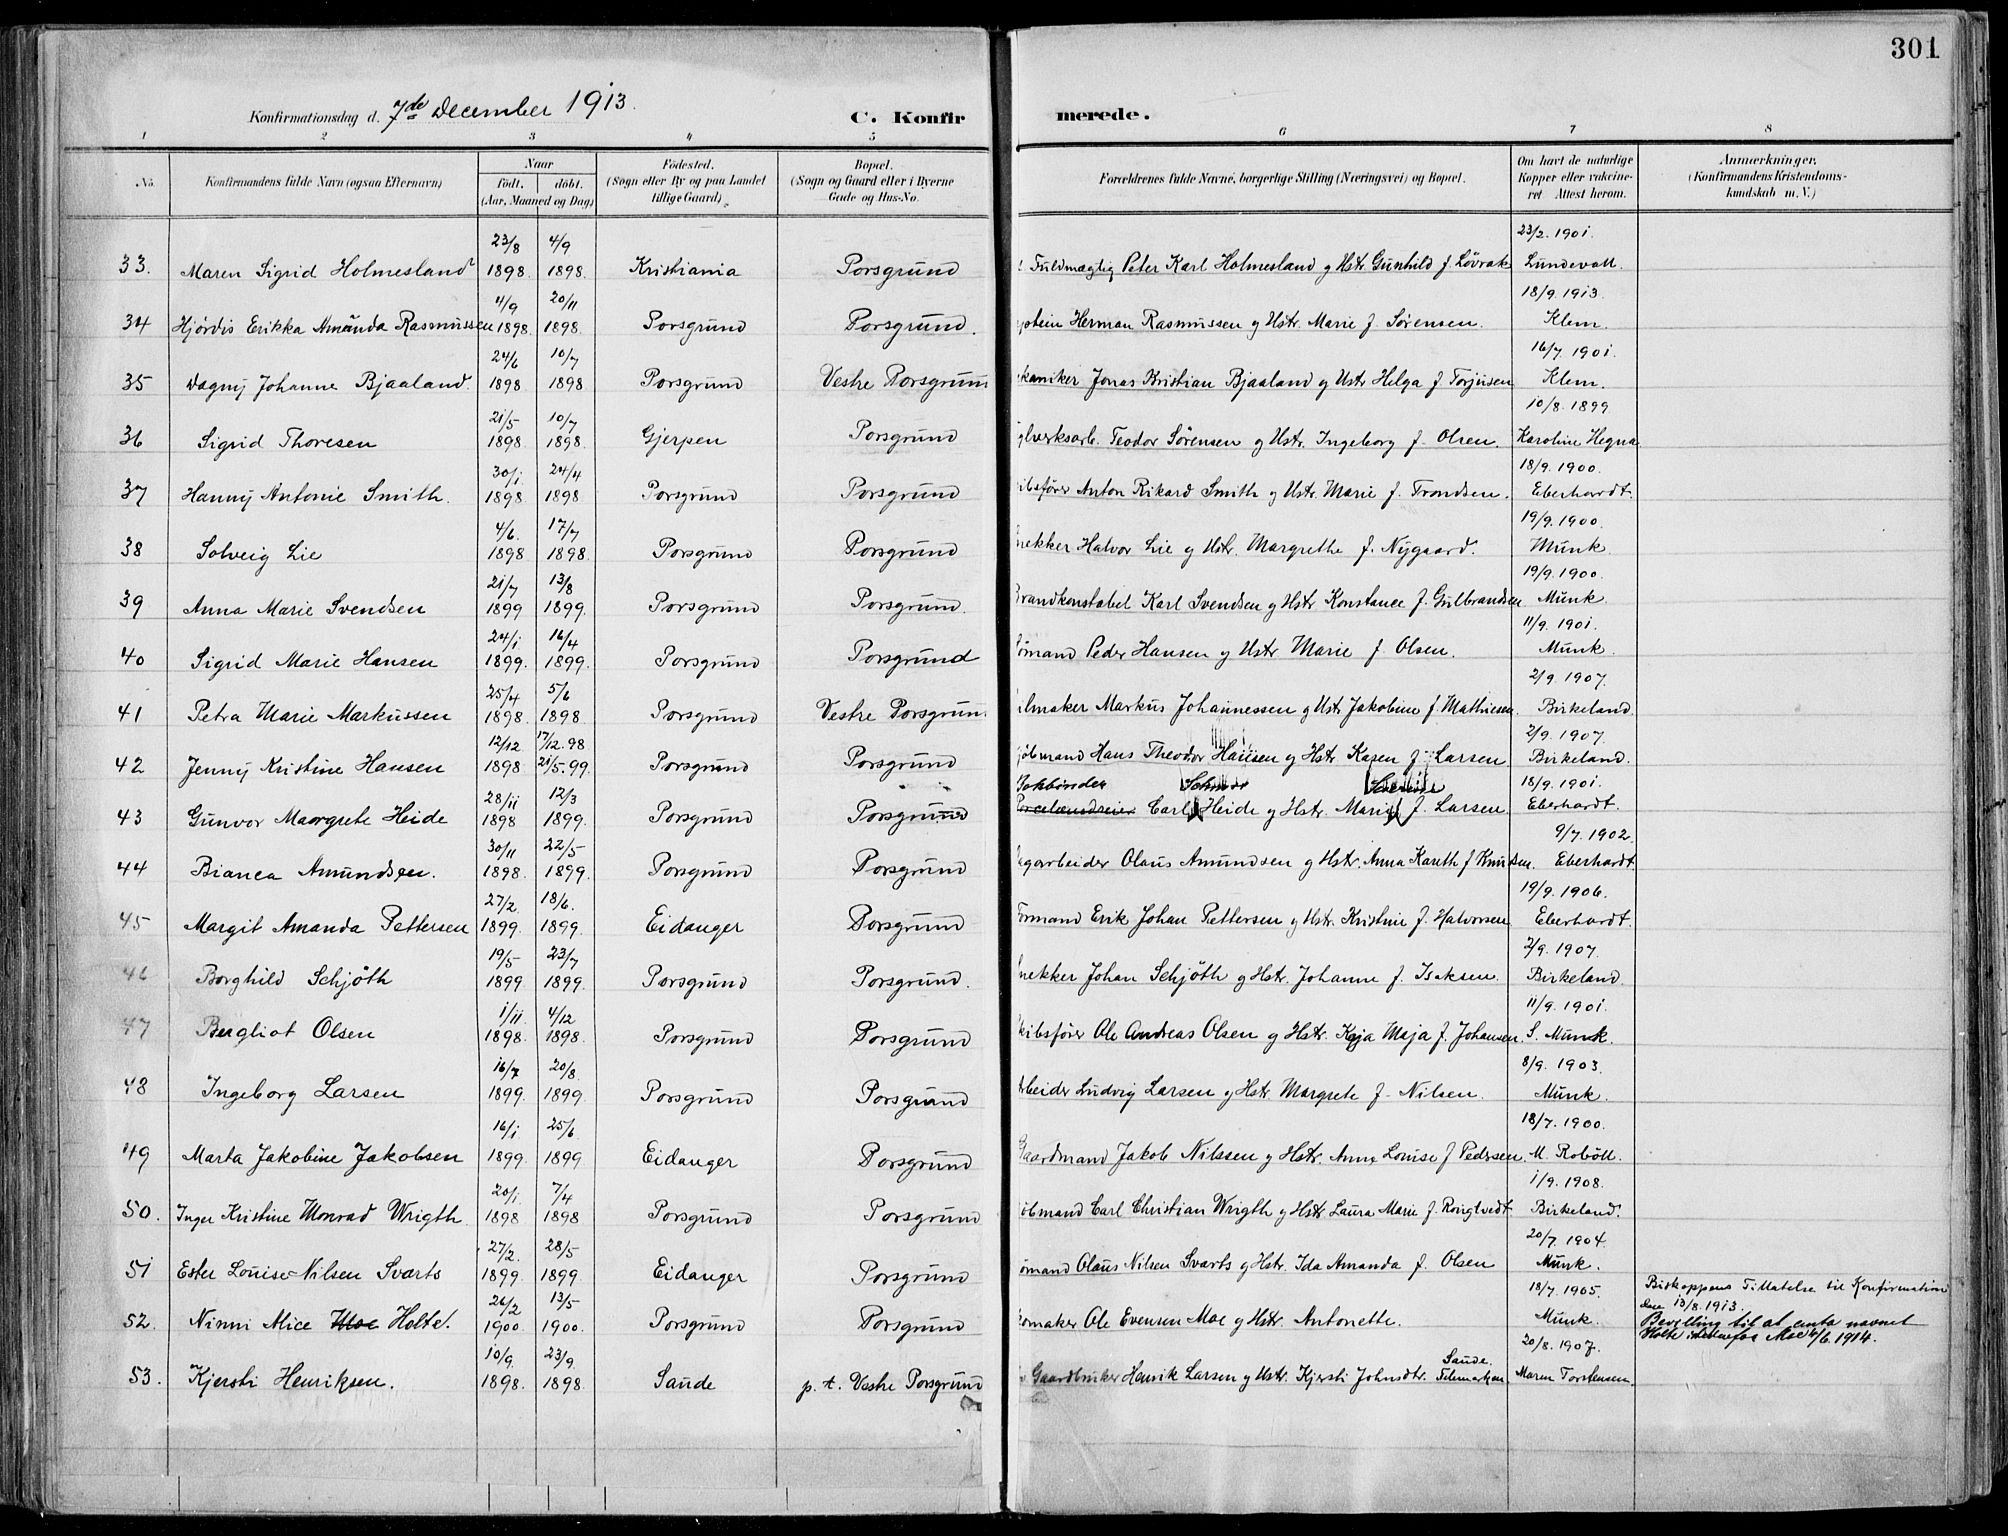 301
Konfirmationsdag d. 7de December 1913.
C. Konfirmerede.
1 2 3 4 5 6 7 8
No.
Konfirmandens fulde Navn (ogsaa Efternavn)
Naar
födt. döbt.
(Aar, Maaned og Dag)
Födested.
(Sogn eller By og paa Landet
tillige Gaard)
Bopæl.
(Sogn og Gaard eller i Byerne
Gade og Hus-No.
Forældrenes fulde Navne, borgerlige Stilling (Næringsvei) og Bopæl.
Om havt de naturlige
Kopper eller vakcine-
ret Attest herom.
Anmærkninger.
(Konfirmandens Kristendoms-
kundskab m. V.)
23/8 4/9 23/2. 1901.
33. Maren Sigrid Holmesland 1898. 1898. Kristiania Porsgrund Fuldmægtig Peter Karl Holmesland g Hstr Gunhild f. Løvrak Lundevall.
4/9 20/11 18/9. 1913.
34 Hjördis Erikka Amanda Rasmussen 1898. 1898. Porsgrund Porsgrund. Herman Rasmussen g Hstr. Marie f. Sørensen. Klem.
24/6 10/7 16/7. 1901.
35 Dagny Johanne Bjaaland. 1898 1898 Porsgrund Vestre Porsgrund kaniker Jonas Kristian Bjaaland g Hstr Helga f Torjusen Klem.
21/5 10/7 10/8. 1899
36 Sigrid Thoresen 1898 1898. Gjerpen Porsgrund glverksarb. Teodor Sørensen g Hstr. Ingeborg f. Olsen. Karoline Hegna
30/1 24/4 18/9. 1900.
37 Hanny Antonie Smith. 1898 1898 Porsgrund Porsgrund ibsfører Anton Rikard Smith g Hstr. Marie f. Trondsen. Eberhardt.
4/6. 17/7 19/9. 1900.
38 Solveig Lie 1898 1898. Porsgrund Porsgrund nekker Halvor Lie g Hstr. Margrethe f. Nygaard. Munk
21/7 13/8 19/9. 1900.
39 Anna Marie Svendsen 1899 1899. Porsgrund Porsgrund. Brandkonstabel Karl Svendsen g Hstr Konstance f. Gulbrandsen Munk.
24/1 16/4 11/9. 1901.
40 Sigrid Marie Hansen 1899. 1899. Porsgrund Porsgrund ømand Peder Hansen g Hstr Marie f Olsen. Munk.
25/4 5/6 2/9. 1907.
41 Petra Marie Markussen 1898. 1898. Porsgrund Vestre Porsgrund ilmaker Markus Johannessen g Hstr Jakobine f Mathiesen. Birkeland.
12/12 17/12. 98 2/9. 1907.
42 Jenny Kristine Hansen 1898 21/5. 99. Porsgrund Porsgrund jøbmand Hans Theodor Hansen g Hstr Karen f. Larsen Birkeland.
Bokbinder 18/9. 1901.
28/11 12/3
43 Gunvor Margrete Heide 1898 1899. Porsgrund Porsgrund Porcelændreier Carl Heide g Hstr. Marie f. Larsen Eberhardt.
30/11 22/5 9/7. 1902.
44 Bianca Amundsen. 1898. 1899. Porsgrund Porsgrund agarbeider Olaus Amundsen g Hstr. Anna Kareth f Knutsen. Eberhardt
27/2. 18/6. 19/9. 1906.
45 Margit Amanda Pettersen 1899. 1899. Eidanger Porsgrund Formand Erik Johan Pettersen g Hstr. Kristine f. Halvorsen Eberhardt.
19/5 23/7 2/9. 1907.
46 Borghild Schjöth 1899 1899. Porsgrund Porsgrund. nekker Johan Schjöth g Hstr. Johanne f. Isaksen. Birkeland.
1/11. 4/12 11/9. 1901.
47 Bergliot Olsen 1898. 1898. Porsgrund Porsgrund kibsfører Ole Andreas Olsen g Hstr. Kaja Maja f. Johansen. S. Munk.
16/7 20/8. 8/9. 1903.
48 Ingeborg Larsen 1899. 1899. Porsgrund Porsgrund rbeider Ludvig Larsen g Hstr. Margrete f. Nilsen. Munk.
16/1. 25/6 18/7. 1900.
49 Marta Jakobine Jakobsen 1899. 1899 Eidanger Porsgrund Gaardmand Jakob Nilssen g Hstr. Anna Louise f Pedersen. M. Roböll.
20/1. 7/4 1/9. 1908.
50. Inger Kristine Monrad Wrigth. 1898 1898 Porsgrund Porsgrund øbmand Carl Christian Wrigth g Hstr. Laura Marie f. Rongtvedt Birkeland.
27/2. 28/5 20/7. 1904.
51 Ester Louise Nilsen Svarts 1899. 1899. Eidanger Porsgrund ømand Olaus Nilsen Svarts g Hstr. Ida Amanda f. Olsen Munk.
26/2 13/5 18/7. 1905. Biskoppens Tilladelse til Konfirmation
den 13/8. 1913.
52. Ninni Alice Moe Holte. 1900. 1900. Porsgrund Porsgrund omaker Ole Evensen Moe g Hstr. Antonette. Munk. Bevilling til at anta navnet
Holte istedenfor Moe 6/6. 1914.
10/9. 23/9. 20/8. 1907.
53. Kjersti Henriksen. 1898. 1898. Saude p. t. Vestre Porsgrund Gaardbruker Henrik Larsen g Hstr. Kjersti Johnsdtr. Saude. Telemarken. Maren Torstensen.